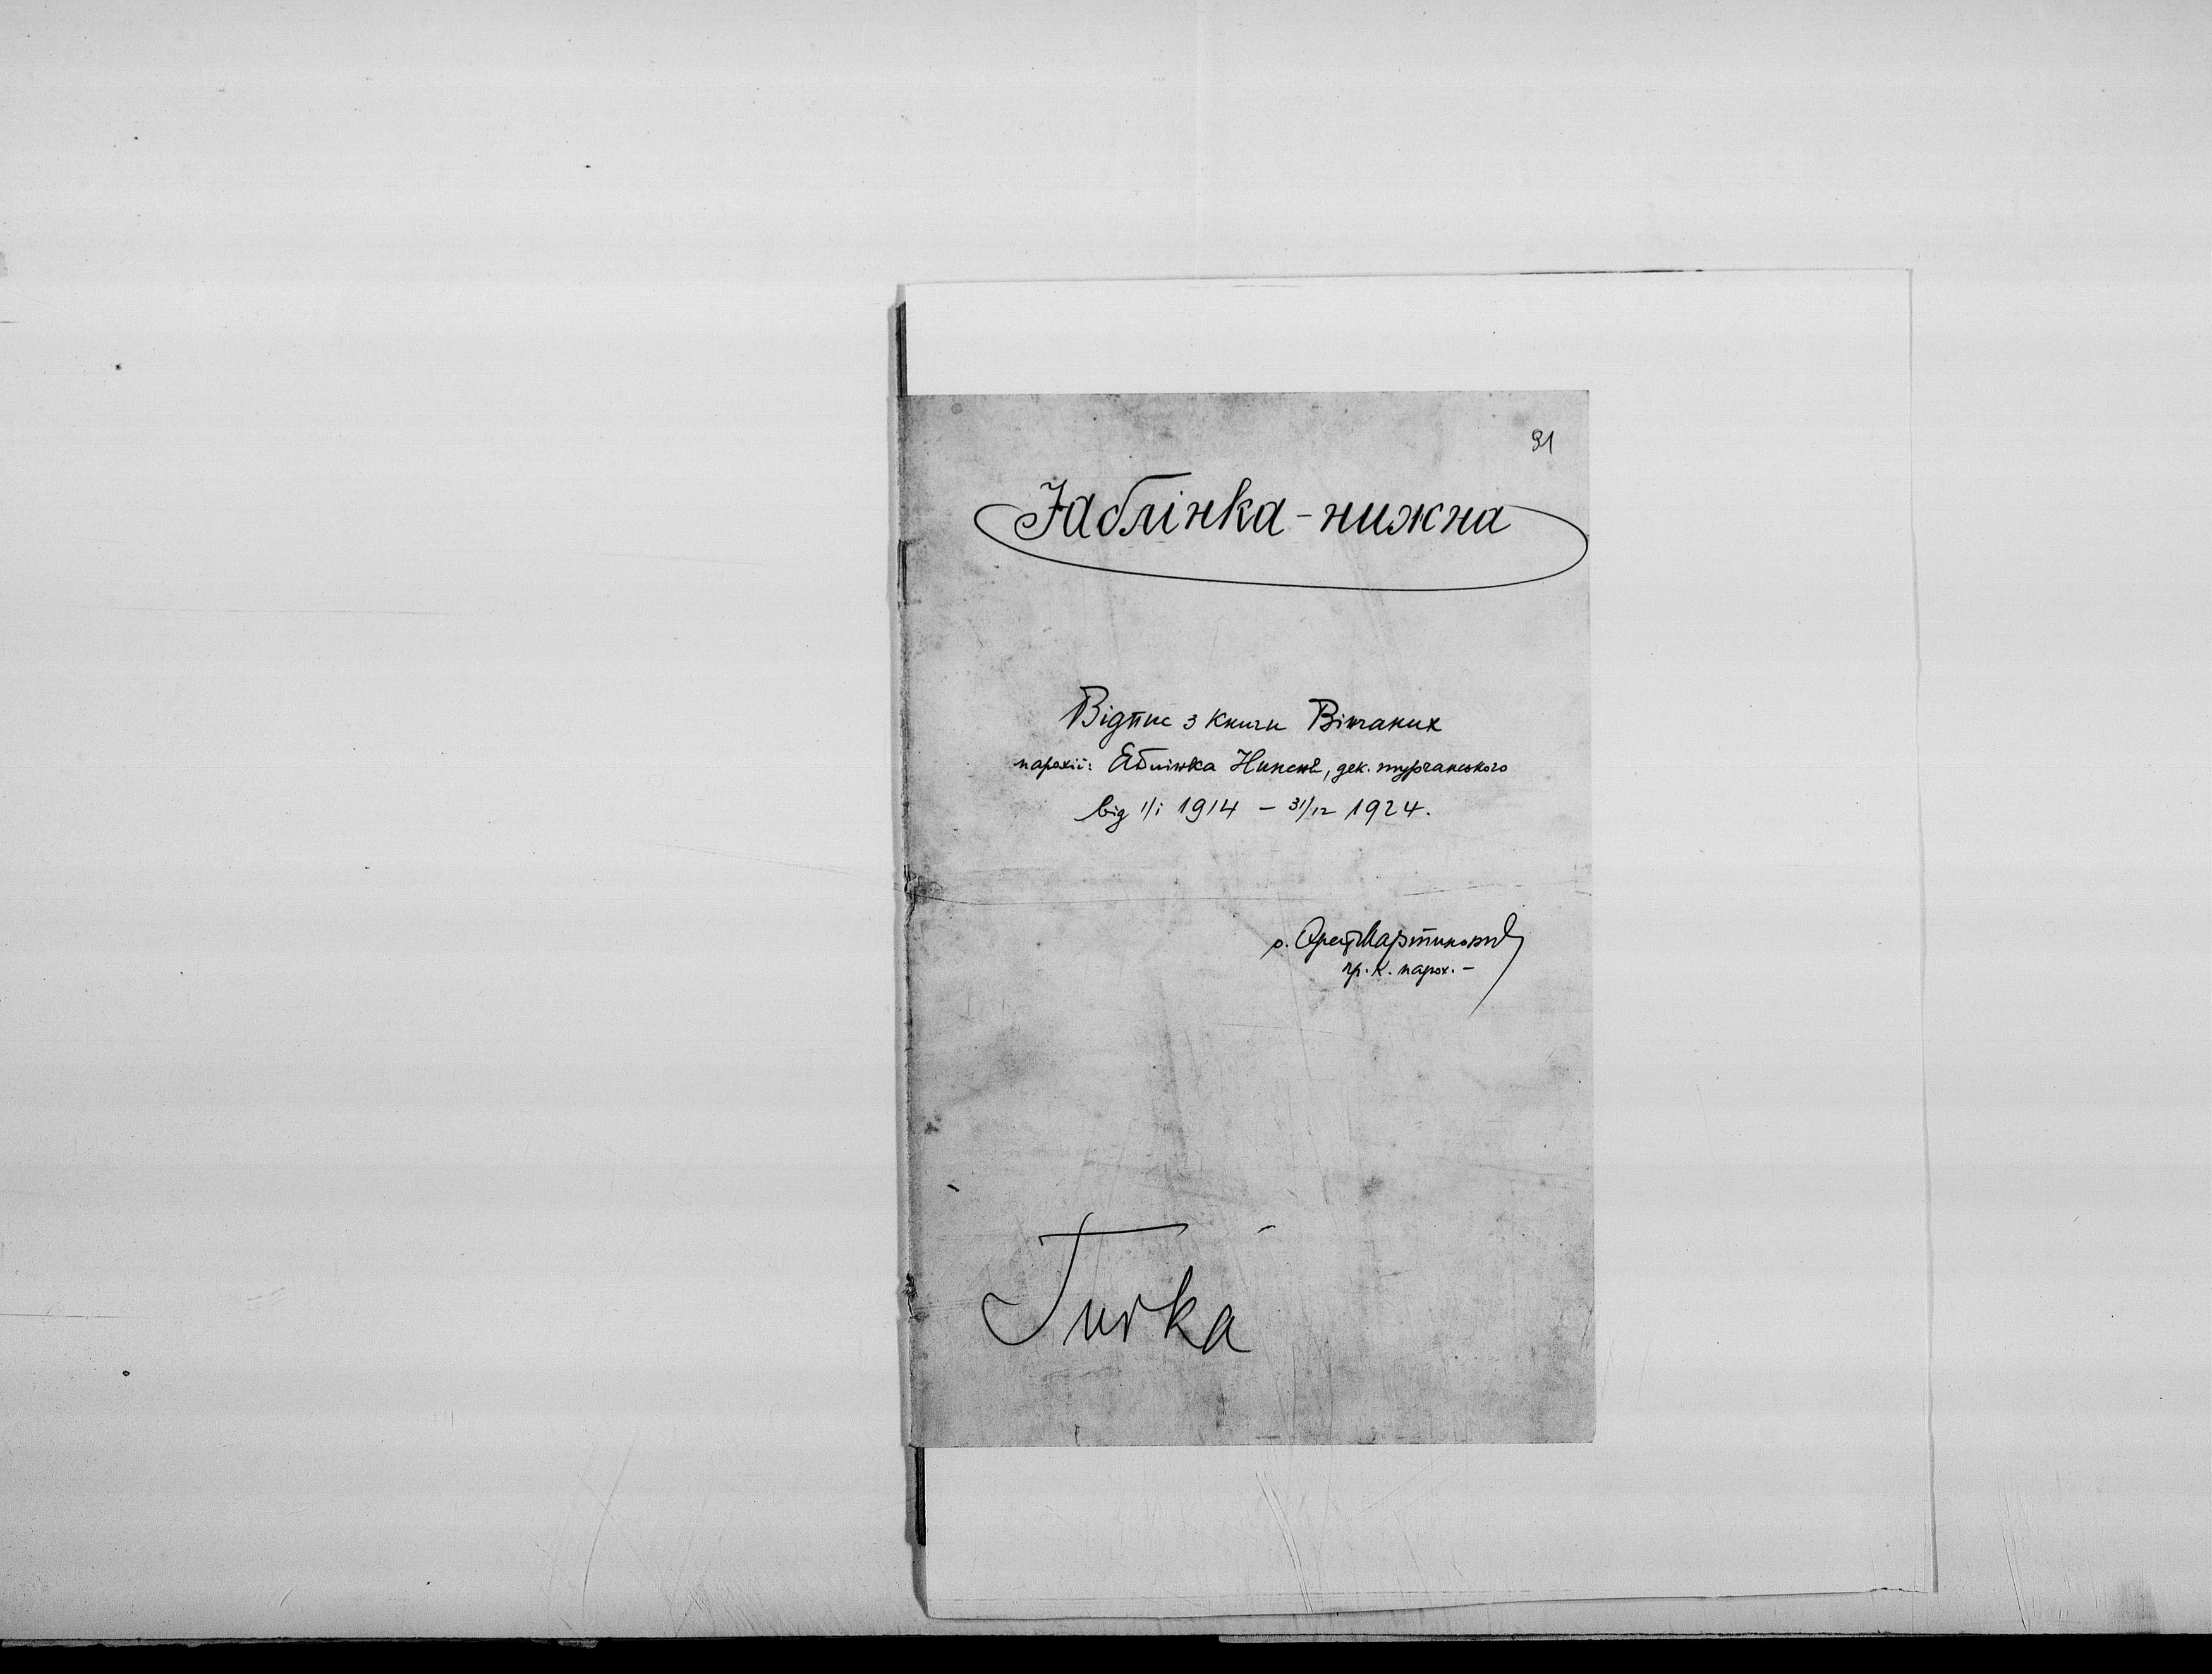 91
Яблінка-нижна
Відпис з книги Вінчаних
парохії: Яблінка Нижня, дек. турчанського
від 1/1 1914 – 31/12 1924.
о. Орест Мартинович
гр. к. парох. –
Turka